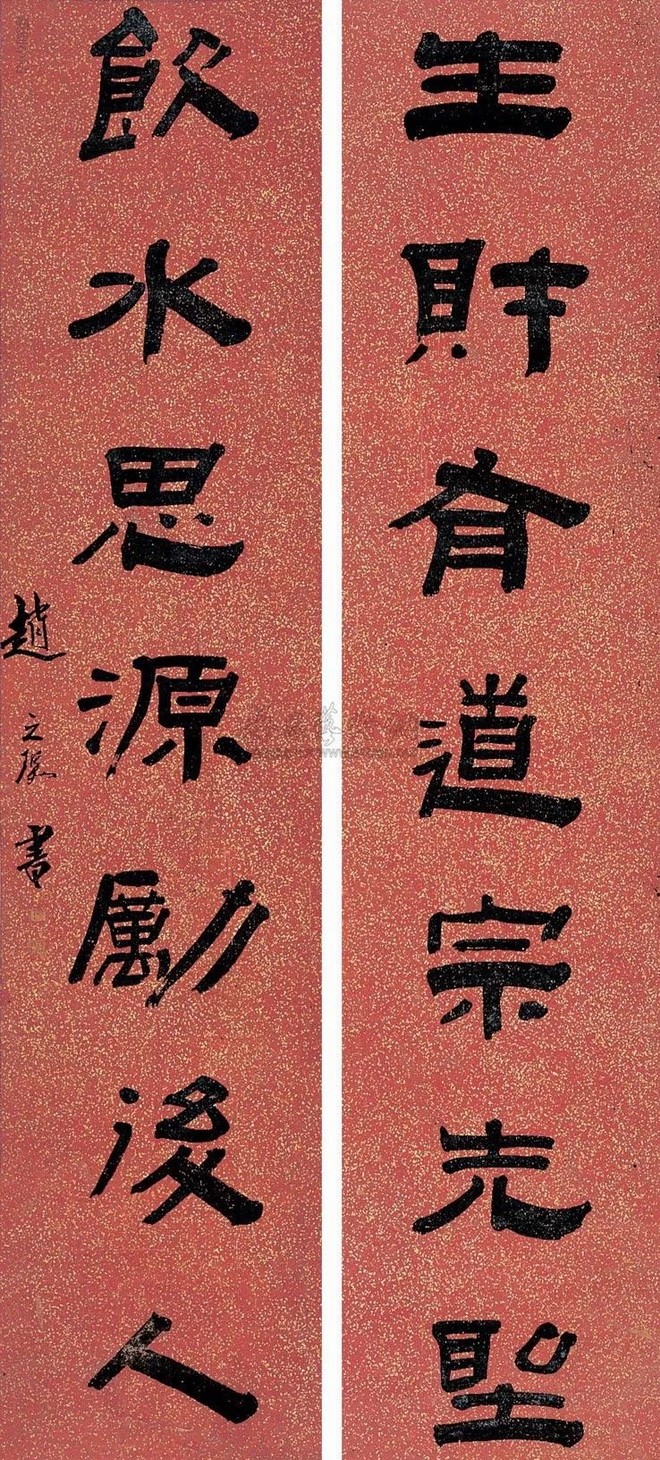 生財有道宗先聖
飲水思源勵後人
趙之
書